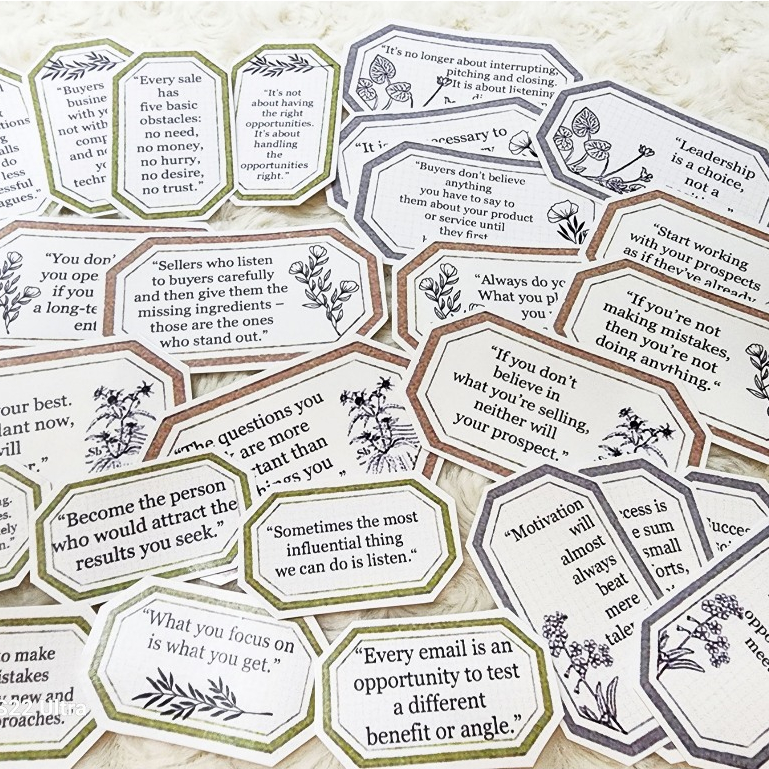 “Buyers
busine
with y
not with
comp
and p
techr
“Every sale
has
five basic
obstacles:
no need,
no money,
no hurry,
no desire,
no trust.”
“It's not
about having
the right
opportunities.
It's about
handling
the
opportunities
right.”
“It's no longer about interrupting,
pitching and closing.
It is about listening
“It is
cessary to
“Buyers don't believe
anything
you have to say to
them about your product
or service until
they first
“Leadership
is a choice,
not a
“Start working
with your prospects
as if they've already
“You don'
you ope
if you
a long-te
ent
“Sellers who listen
to buyers carefully
and then give them the
missing ingredients –
those are the ones
who stand out.”
“Always do yo
What you pl
you
“If you're not
making mistakes,
then you're not
doing anything.“
your best.
lant now,
will
r.”
“The questions you
are more
tant than
hings you
“If you don't
believe in
what you're selling,
neither will
your prospect.”
“Become the person
who would attract the
results you seek.”
“Sometimes the most
influential thing
we can do is listen.“
“Motivation
will
almost
always
beat
mere
tale
cess is
e sum
small
orts,
Succe
oppo
mee
to make
istakes
new and
proaches.”
“What you focus on
is what you get.”
“Every email is an
opportunity to test
a different
benefit or angle.”
S22 Ultra